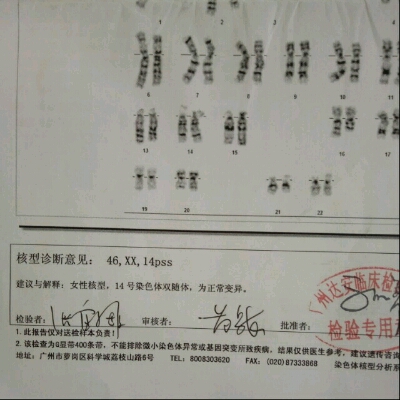 6 7 8 9 10 11
13 14 15 16 17
19 20 21 22
核型诊断意见: 46,XX,14pss
建议与解释: 女性核型, 14 号染色体双随体, 为正常变异。
检验者:
审核者:
批准者:
广州达安临床检
检验专用
1.此报告仅对送检样本负责!
2.该检查为G显带400条带, 不能排除微小染色体异常或基因突变所致疾病, 结果仅供医生参考, 建议遗传咨询
地址: 广州市萝岗区科学城荔枝山路6号 TEL: 8008303620 FAX: (020)87333868 染色体核型分析系